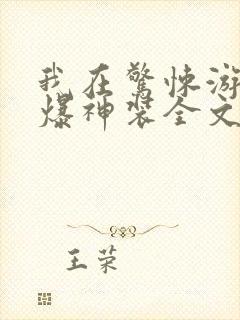 我在驚悚游
爆神裝全文
王荣